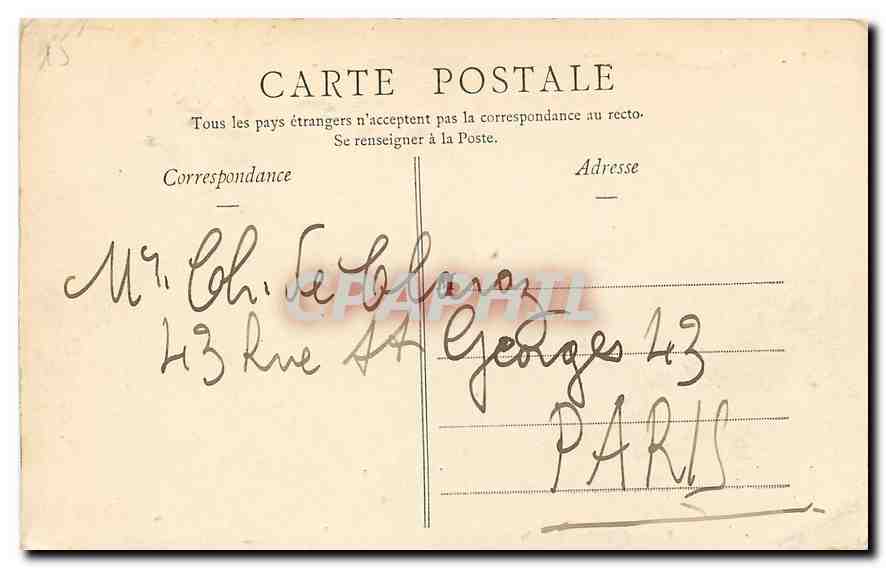 15
CARTE POSTALE
Tous les pays étrangers n'acceptent pas la correspondance au recto.
Se renseigner à la Poste.
Correspondance
Adresse
Mr. Ch. de
CPAPHIL
43 Rue St Georges 43
PARIS